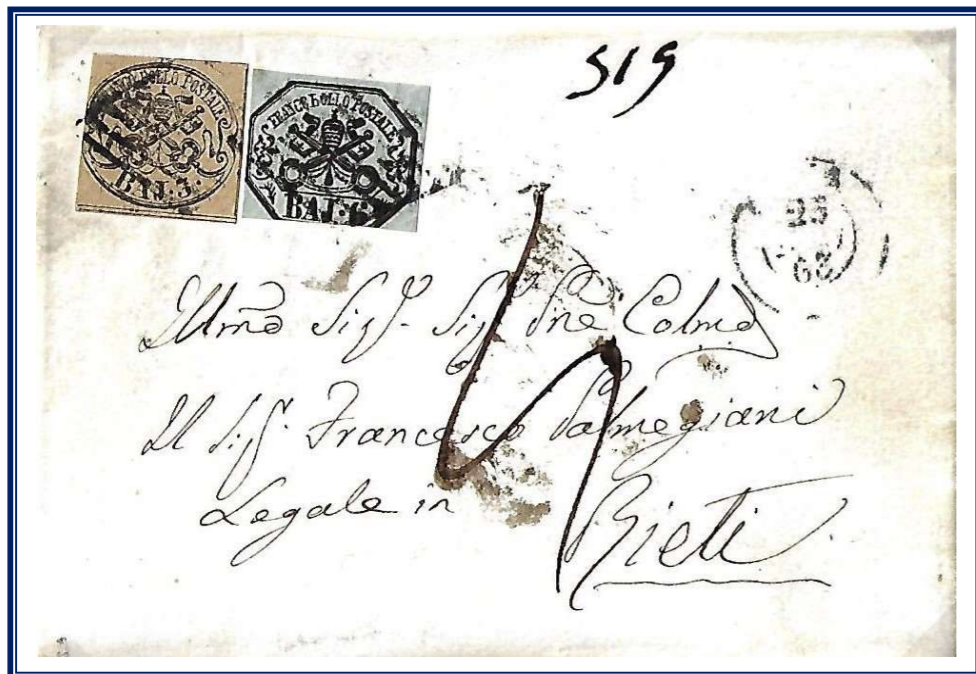 FRANCO BOLLO POSTALE
BAJ: 3.
FRANCO BOLLO POSTALE
BAJ: 6
519
25
63
Illmo Sigr. Sigr. Pne Colmo
Il Sigr. Francesco Palmegiani
Legale in
Rieti